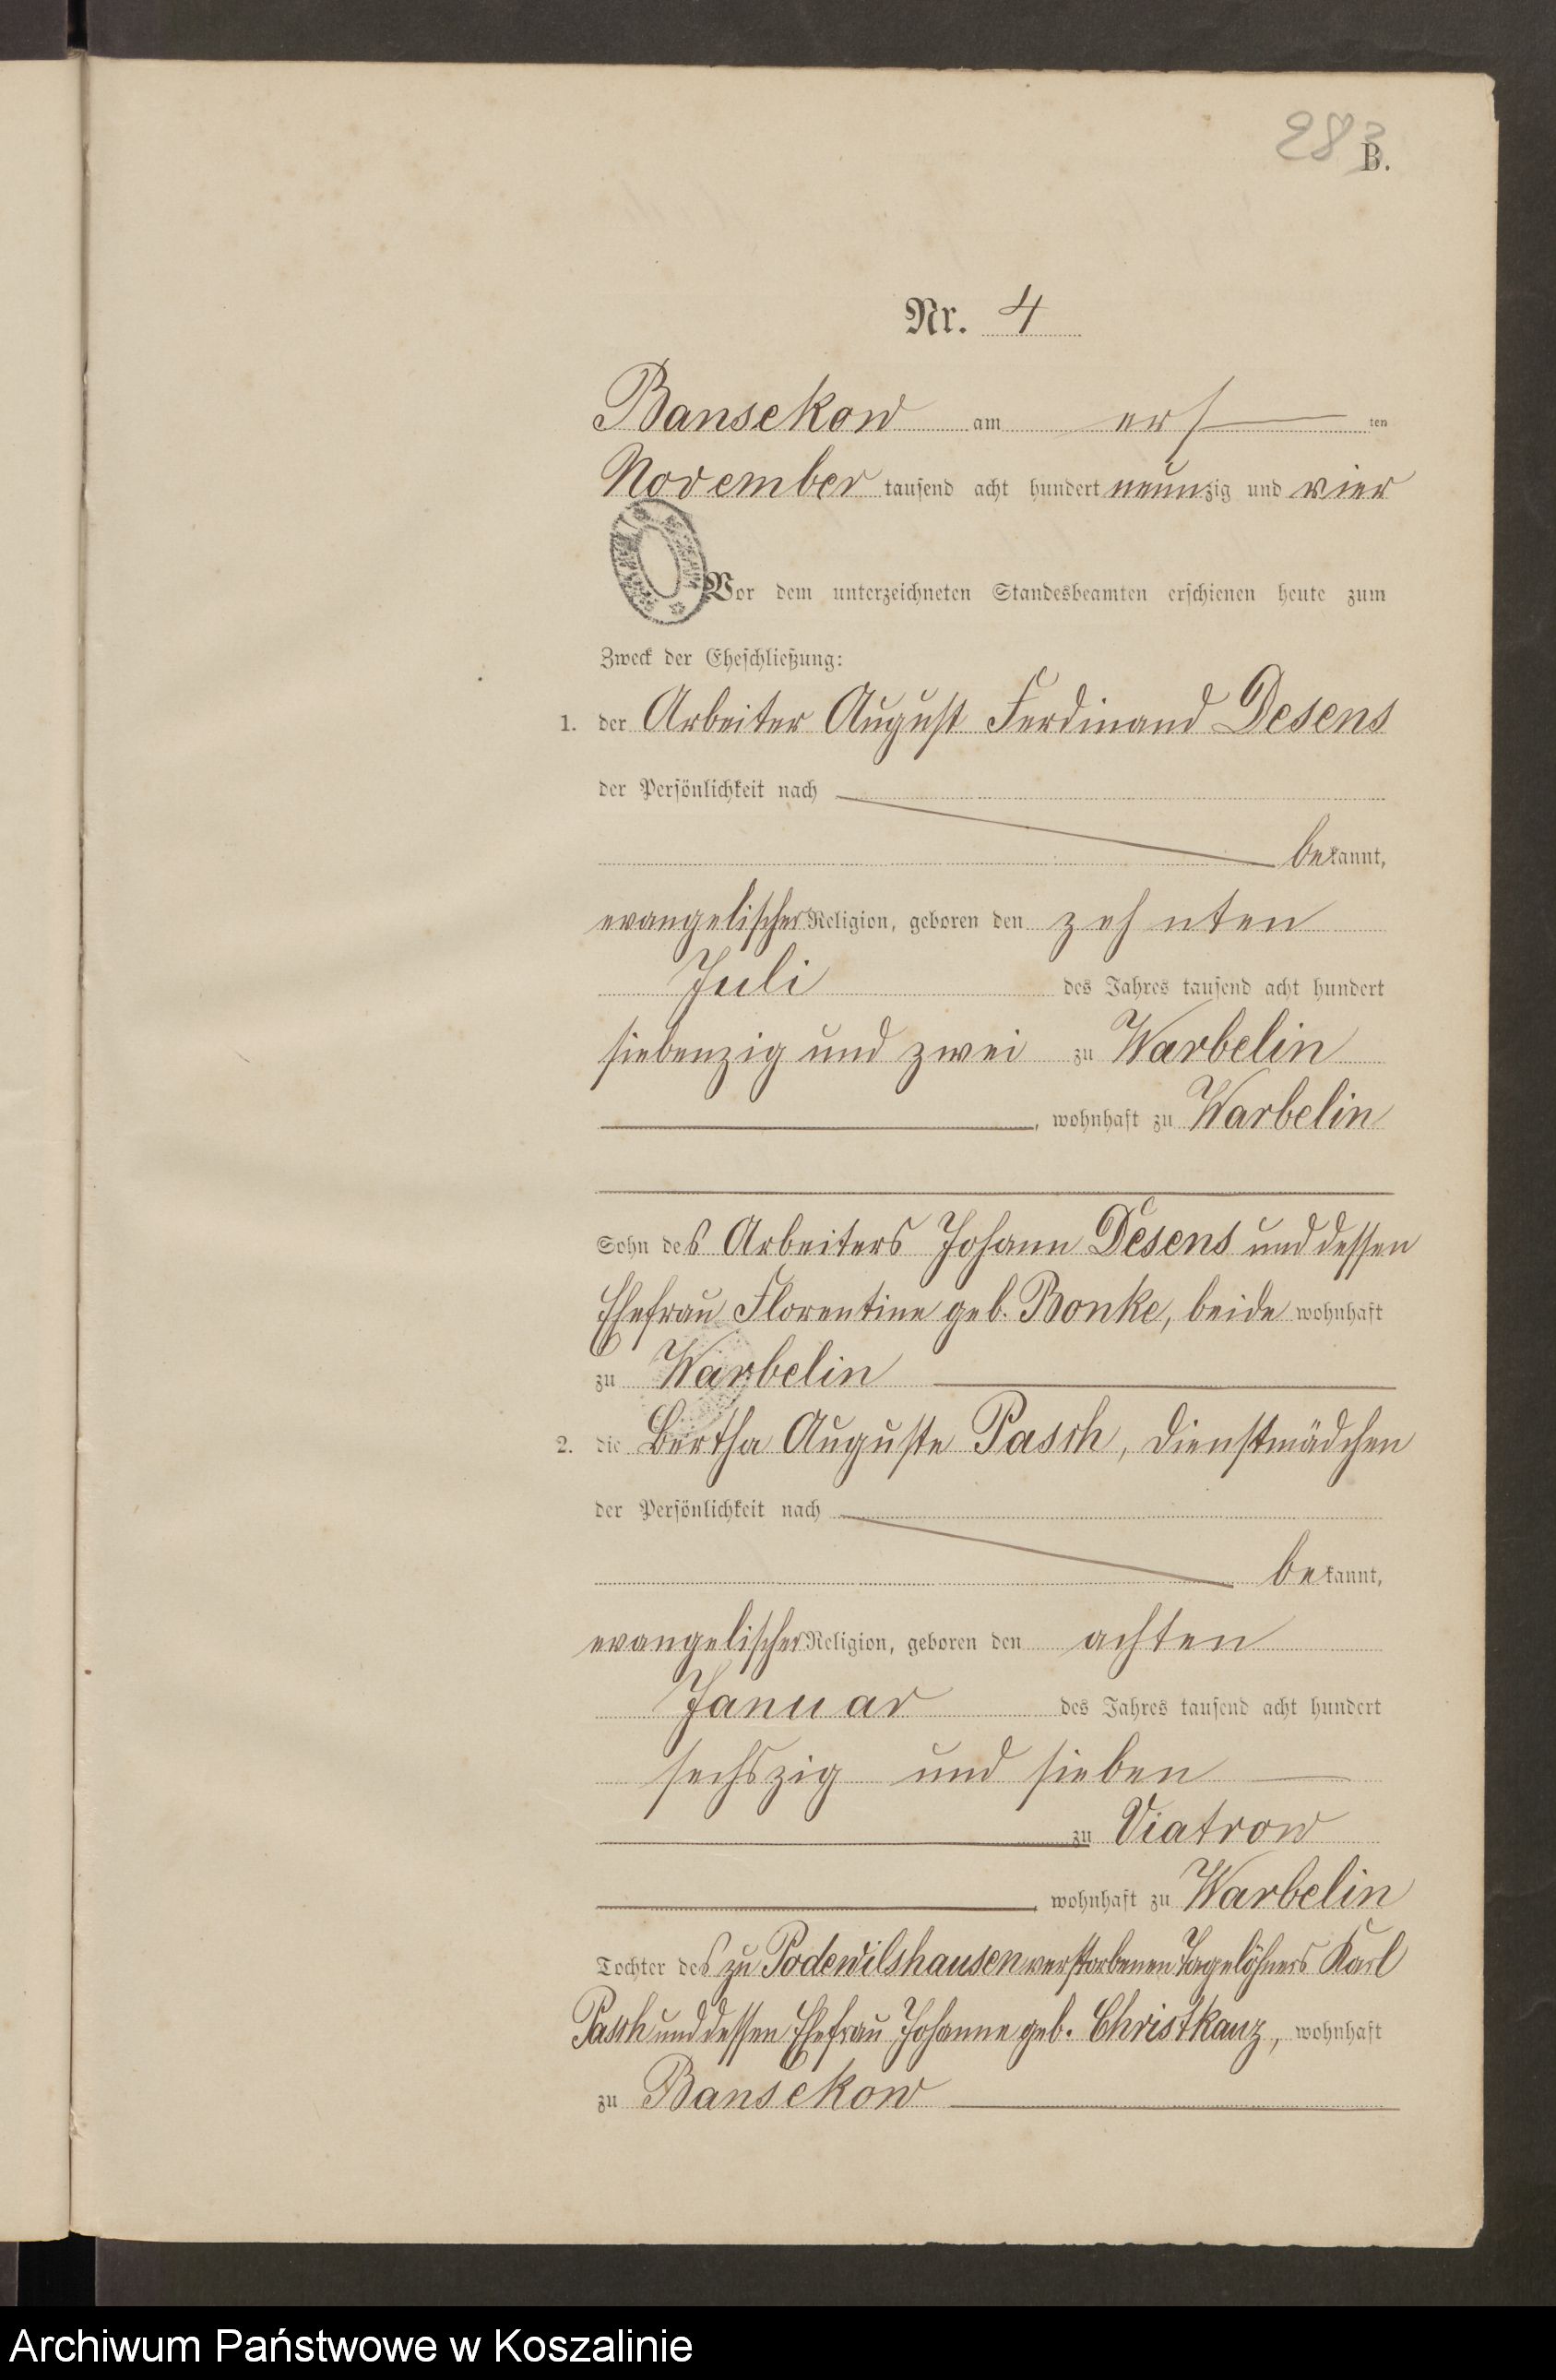 283
B.
Nr. 4
Bansekow am ersten
November tausend acht hundert neunzig und vier
Vor dem unterzeichneten Standesbeamten erschienen heute zum
Zweck der Eheschließung:
1. der Arbeiter August Ferdinand Desens
der Persönlichkeit nach
bekannt,
evangelischer Religion, geboren den zehnten
Juli des Jahres tausend acht hundert
siebenzig und zwei zu Warbelin
, wohnhaft zu Warbelin
Sohn des Arbeiters Johann Desens und dessen
Ehefrau Florentine geb. Bonke, beide wohnhaft
zu Warbelin
2. die Bertha Auguste Pasch, Dienstmädchen
der Persönlichkeit nach
bekannt,
evangelischer Religion, geboren den achten
Januar des Jahres tausend acht hundert
sechszig und sieben
zu Viatrow
, wohnhaft zu Warbelin
Tochter des zu Podewilshausen verstorbenen Tagelöhners Karl
Pasch und dessen Ehefrau Johanne geb. Christkauz, wohnhaft
zu Bansekow
Archiwum Państwowe w Koszalinie